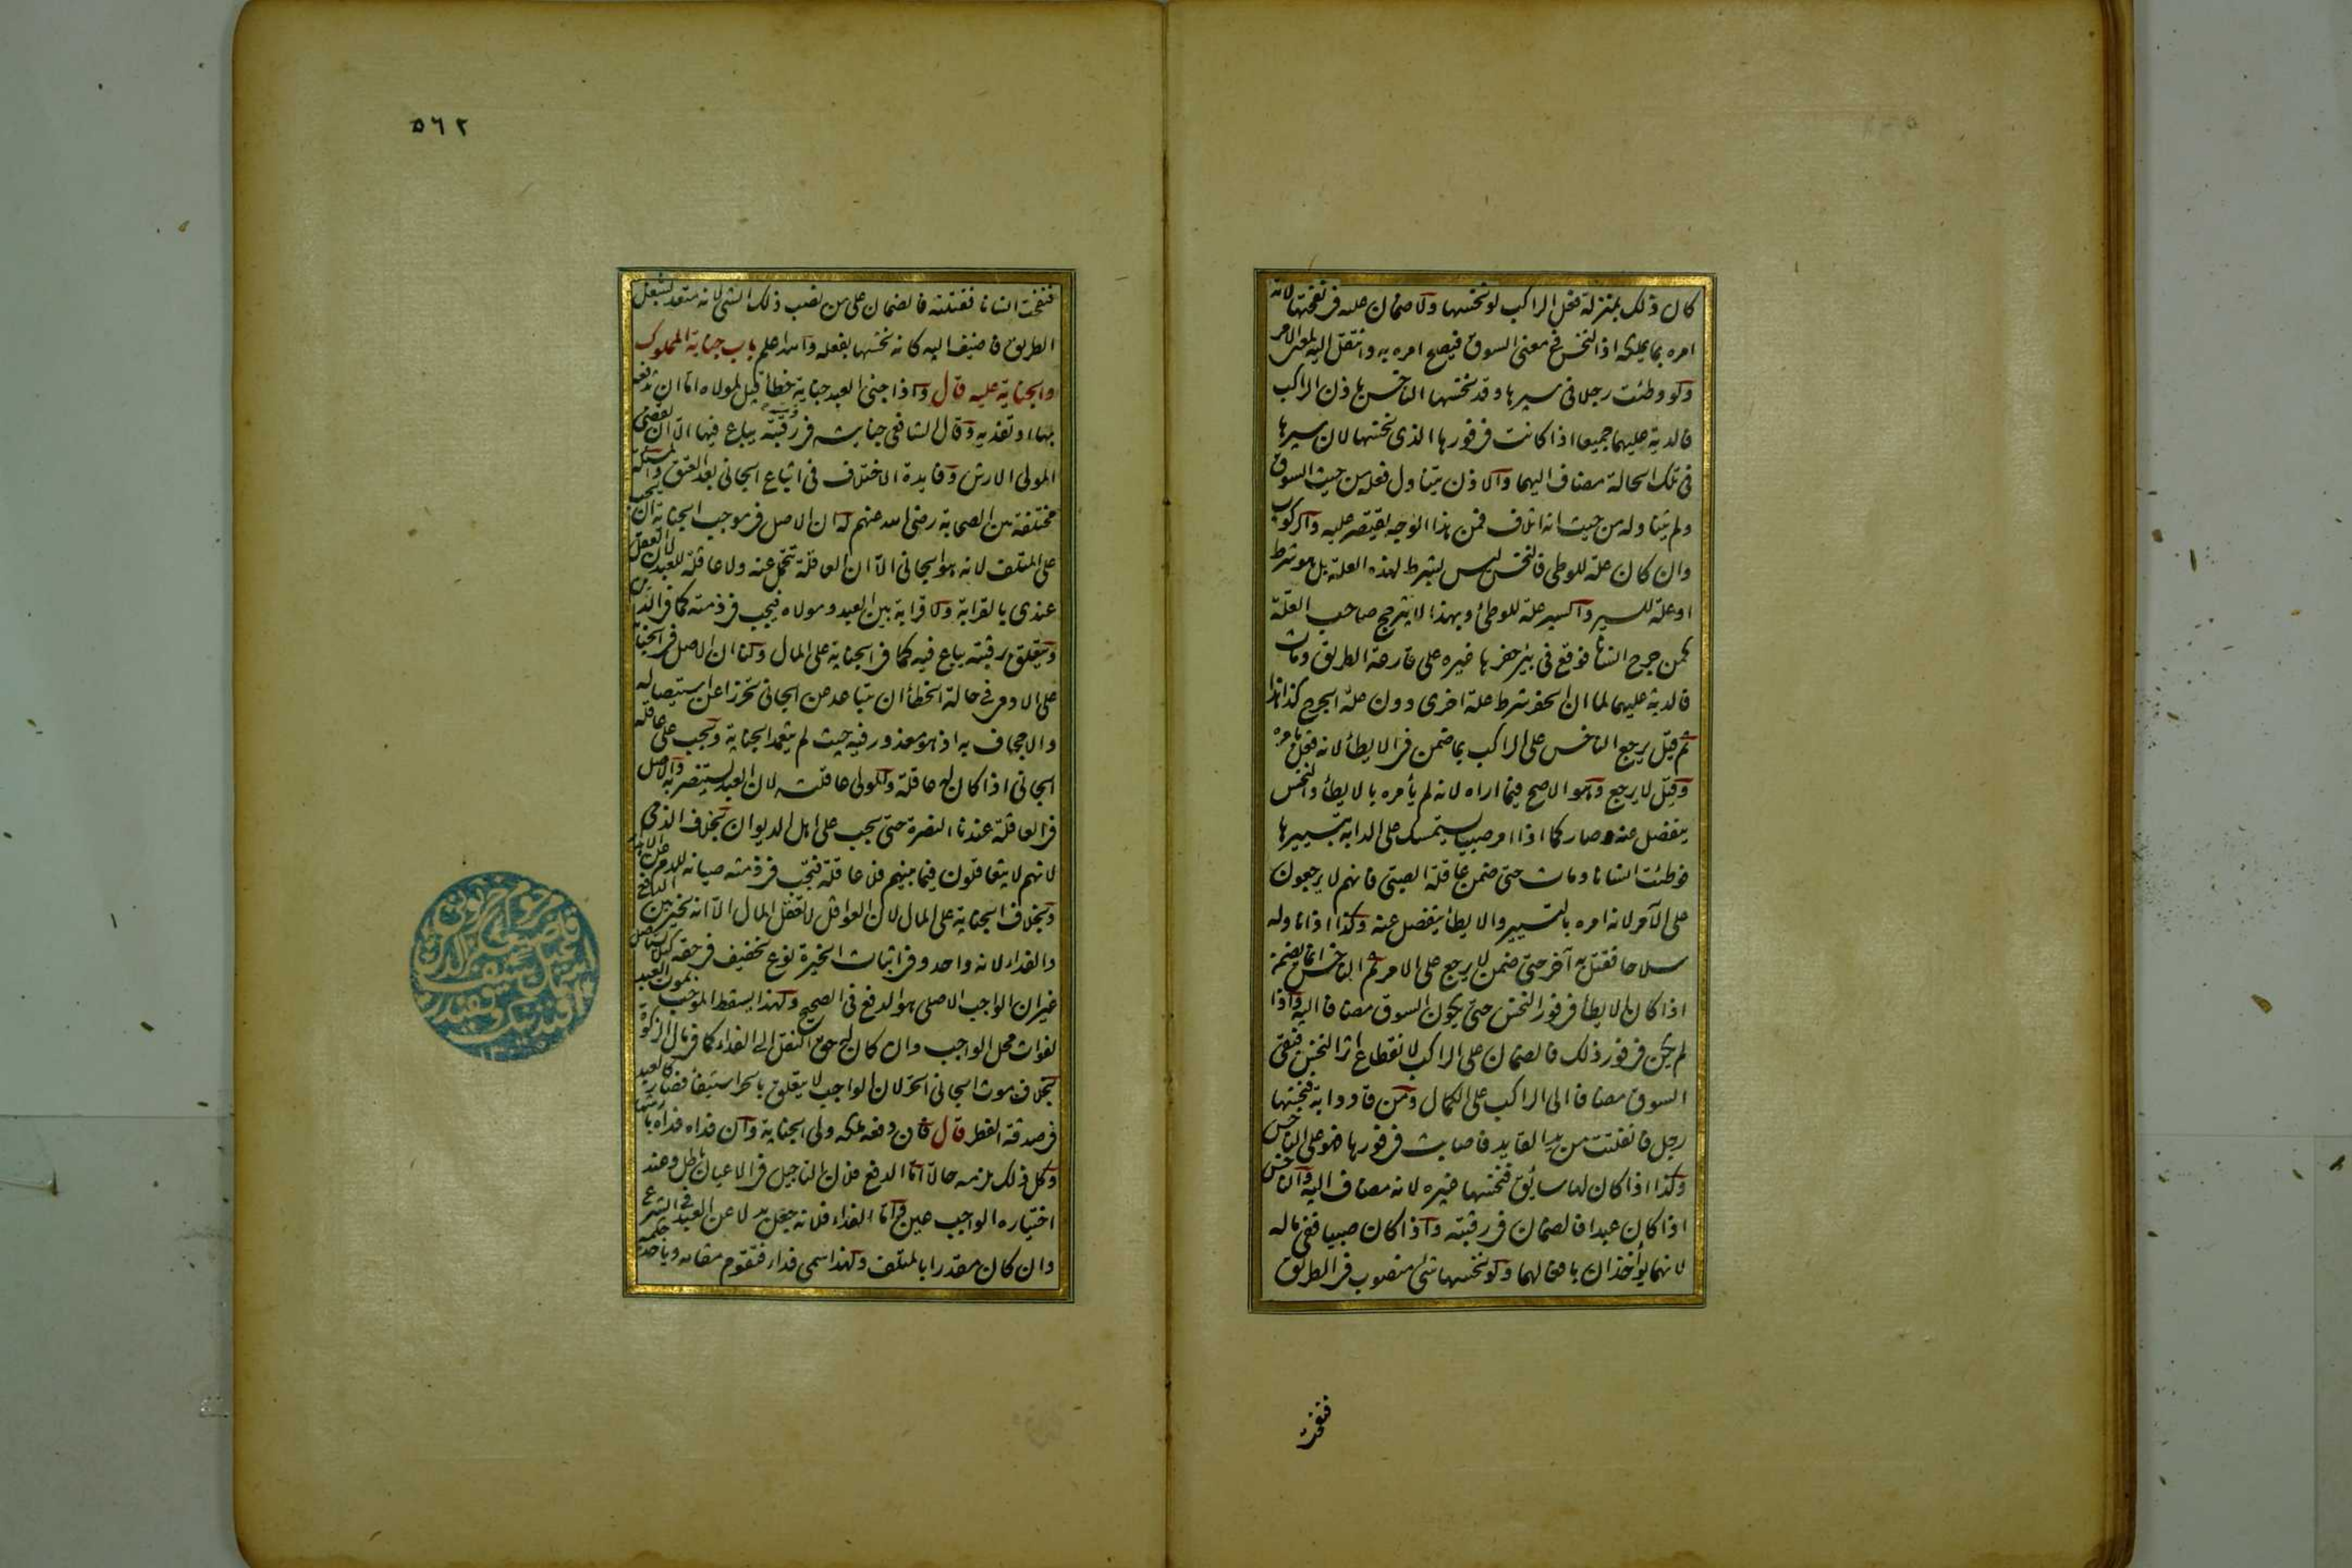 كان ذلك بمنزلة فعل الراكب لو نخسها ولا ضمان عليه في نفحتها لانه
امره بما يملكه اذ النخس في معنى السوق فيصح امره به وانتقل اليه لمعنى الامر
ولو وطئت رجلا في سيرها وقد نخسها الناخس باذن الراكب
فالدية عليهما جميعا اذا كانت في فورها الذي نخسها لان سيرها
في تلك الحالة مضاف اليهما والاذن يتناول فعله من حيث السوق
ولم يتناوله من حيث انه اتلاف فمن هذا الوجه يقتصر عليه والركوب
وان كان علة للوطئ فالنخس ليس بشرط لهذه العلة بل هو شرط
او علة للسير والسير علة للوطئ وبهذا لا يترجح صاحب العلة
كمن جرح انسانا فوقع في بئر حفرها غيره على قارعة الطريق ومات
فالدية عليهما لما ان الحفر شرط علة اخرى دون علة الجرح كذا هذا
ثم قيل يرجع الناخس على الراكب بما ضمن في الايطأ لانه فعل بامره
وقيل لا يرجع وهو الاصح فيما اراه لانه لم يأمره بالايطأ والنخس
ينفصل عنه وصار كما اذا امر صبيا يستمسك على الدابة بتسييرها
فوطئت انسانا ومات حتى ضمن عاقلة الصبي فانهم لا يرجعون
على الآمر لانه امره بالتسيير والايطأ ينفصل عنه وكذا اذا ناوله
سلاحا فقتل به آخر حتى ضمن لا يرجع على الامر ثم الناخس انما يضمن
اذا كان الايطأ في فور النخس حتى يكون السوق مضافا اليه واذا
لم يكن في فور ذلك فالضمان على الراكب لانقطاع اثر النخس فبقي
السوق مضافا الى الراكب على الكمال ومن قاد دابة فنخسها
رجل فانفلتت من يد القايد فاصابت في فورها فهو على الناخس
وكذا اذا كان لها سائق فنخسها غيره لانه مضاف اليه والناخس
اذا كان عبدا فالضمان في رقبته واذا كان صبيا ففي ماله
لانهما يؤخذان بافعالهما ولو نخسها شئ منصوب في الطريق
فنفحت
٥٦٢
فنفحت انسانا فقتلته فالضمان على من نصب ذلك الشئ لانه متعد بشغل
الطريق فاضيف اليه كانه نخسها بفعله والله اعلم باب جناية المملوك
والجناية عليه قال واذا جنى العبد جناية خطأ قيل لمولاه اما ان تدفعه
بها او تفديه وقال الشافعي جنايته في رقبته يباع فيها الا ان يقضي
المولى الارش وفايدة الاختلاف في اتباع الجاني بعد العتق والمسئلة
مختلفة بين الصحابة رضي الله عنهم له ان الاصل في موجب الجناية ان يجب
على المتلف لانه هو الجاني الا ان العاقلة تتحمل عنه ولا عاقلة للعبد لان العقل
عندي بالقرابة ولا قرابة بين العبد ومولاه فيجب في ذمته كما في الدين
ويتعلق برقبته يباع فيه كما في الجناية على المال ولنا ان الاصل في الجناية
على الادمي في حالة الخطأ ان يتباعد عن الجاني تحرزا عن استيصاله
والاجحاف به اذ هو معذور فيه حيث لم يتعمد الجناية وتجب على عاقلة
الجاني اذا كان له عاقلة والمولى عاقلته لان العبد يستنصر به والاصل
في العاقلة عندنا النصرة حتى يجب على اهل الديوان بخلاف الذمي
لانهم لا يتعاقلون فيما بينهم فلا عاقلة فتجب في ذمته صيانة للدم عن الاهدار
وبخلاف الجناية على المال لان العواقل لا تعقل المال الا انه يخير بين الدفع
والفداء لانه واحد وفي اثبات الخيرة نوع تخفيف في حقه كيلا يستأصل
غير ان الواجب الاصلي هو الدفع في الصحيح ولهذا يسقط الموجب بموت العبد
لفوات محل الواجب وان كان له حق النقل الى الفداء كما في مال الزكوة
بخلاف موت الجاني الحر لان الواجب لا يتعلق بالحر استيفأ فصار كالعبد
في صدقة الفطر قال فان دفعه ملكه ولي الجناية وان فداه فداه بارشها
وكل ذلك يلزمه حالا اما الدفع فلان التاجيل في الاعيان باطل وعند
اختياره الواجب عين واما الفداء فلانه جعل بدلا عن العبد في الشرع
وان كان مقدرا بالمتلف ولهذا سمي فداء فتقوم مقامه وياخذ حكمه